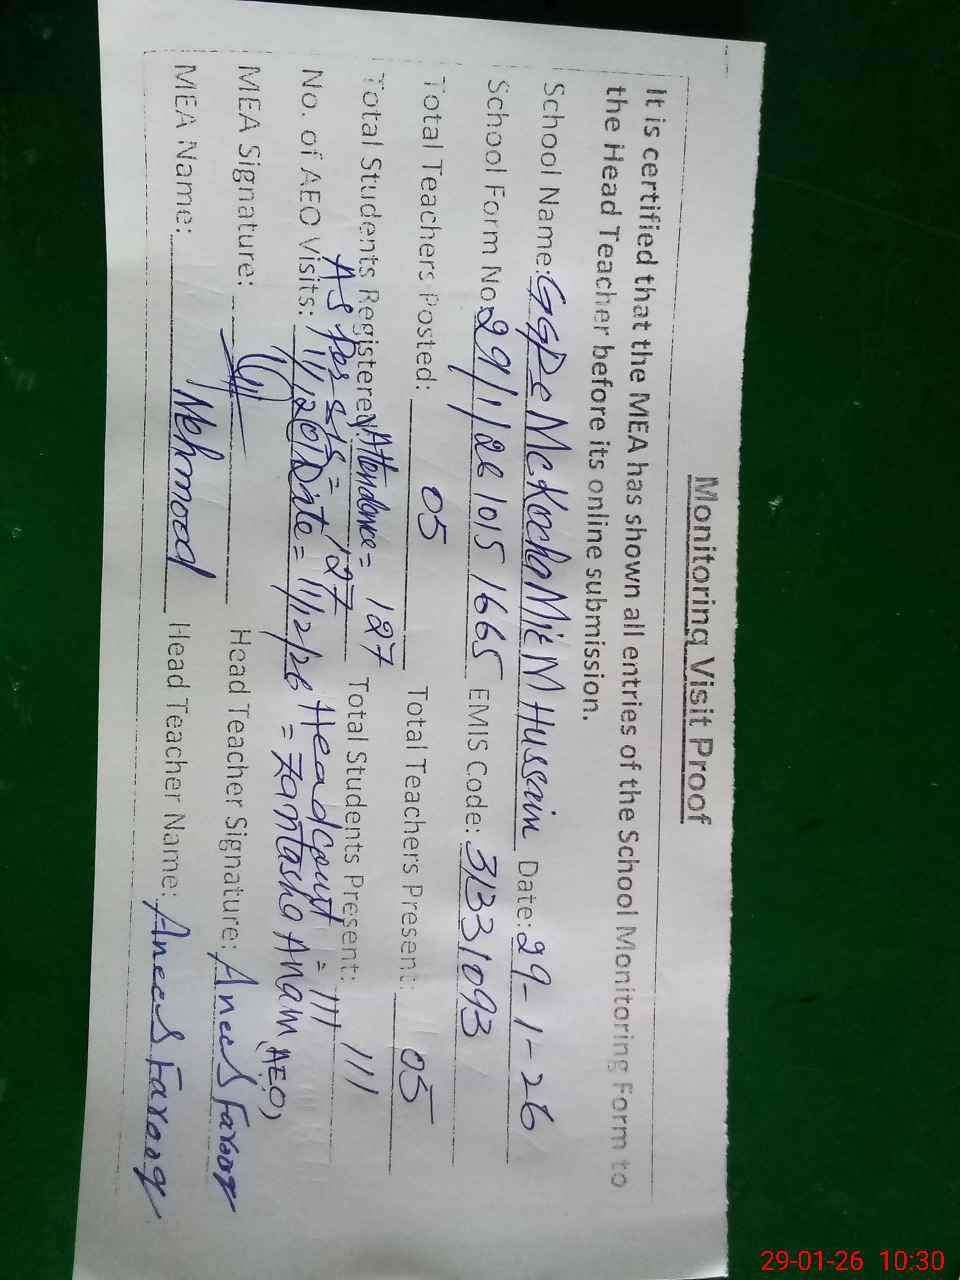 Monitoring Visit Proof
It is certified that the MEA has shown all entries of the School Monitoring Form to
the Head Teacher before its online submission.
School Name: GGPS Mc Kocha Mit M Hussain Date: 29-1-26
School Form No: 29/1/26 1015 1665 EMIS Code: 31331093
Total Teachers Posted: 05 Total Teachers Present: 05
Total Students Registered: Attendence = 127 Total Students Present: 111
As per sis = 127 Headcount = 111
No. of AEO Visits: Date = 11/12/26 = Zamtasha Anam (AEO)
MEA Signature: Head Teacher Signature: Anees Farooq
MEA Name: Mehmood Head Teacher Name: Anees Farooq
29-01-26 10:30